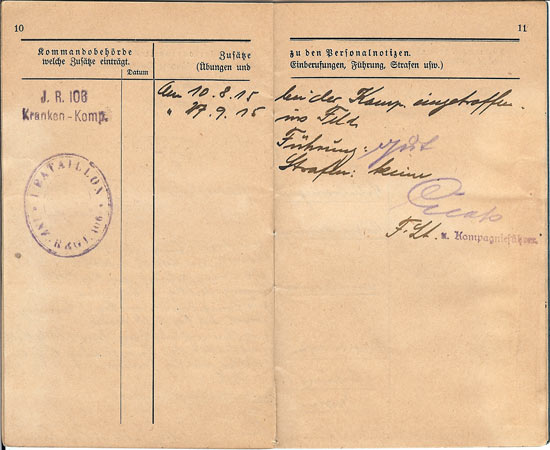 10
Kommandobehörde
welche Zusätze einträgt.
Datum
Zusätze
(Übungen und
J. R. 106
Kranken-Komp.
I BATAILLON
INF. REGT. 106
Am 10.8.15
" 27.9.15
11
zu den Personalnotizen.
Einberufungen, Führung, Strafen usw.)
bei der Komp. eingetroffen.
ins Feld
Führung: gut
Strafen: keine
F. Lt. u. Kompagnieführer.